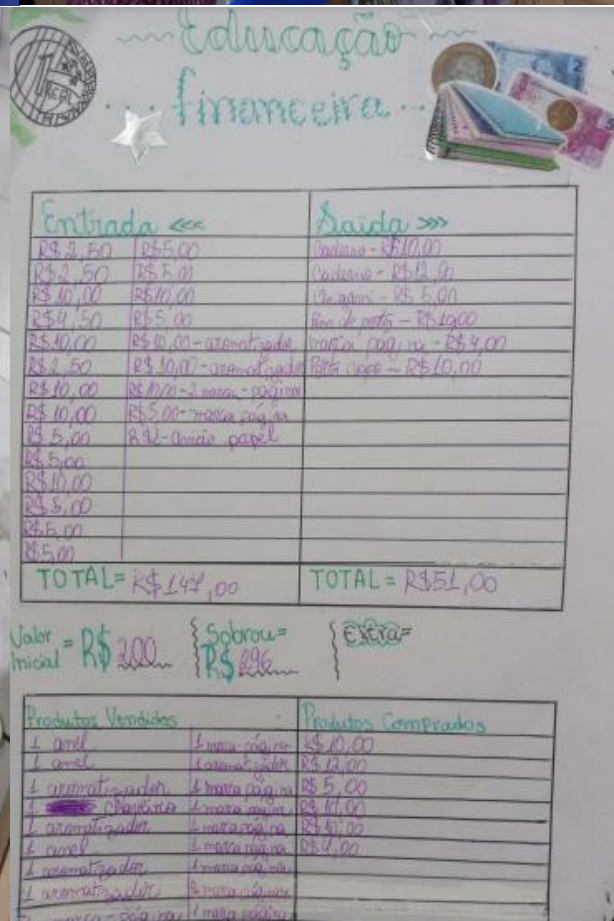 Educação
financeira
Entrada <<< Saída >>>
R$ 2,50 R$ 5,00 Caderno - R$10,00
R$ 2,50 R$ 5,00 Caderno - R$12,00
R$ 10,00 R$10,00 R$ 5,00
R$4,50 R$ 5,00
R$10,00 R$ 10,00 - aromatizador marca pag na - R$ 4,00
R$ 2,50 R$ 10,00 - aromatizador Porta copo - R$ 10,00
R$ 10,00 R$ 10,00 - 2 marca - página
R$ 10,00 R$ 5,00 - marca página
R$ 5,00 papel
R$ 5,00
R$ 10,00
R$ 5,00
R$ 5,00
R$ 5,00
TOTAL= R$ 147,00 TOTAL = R$51,00
Valor Inicial = R$ 200 Sobrou= R$ 296 Extra=
Produtos Vendidos Produtos Comprados
1 anel 1 marca-página R$ 10,00
1 anel 1 aromatizador R$ 12,00
1 aromatizador 1 marca página R$ 5,00
1 chaveiro 1 marca página R$ 10,00
1 aromatizador 1 marca página R$ 10,00
1 anel 1 marca página R$ 4,00
1 aromatizador 1 marca página
1 aromatizador marca página
marca - página 1 marca página